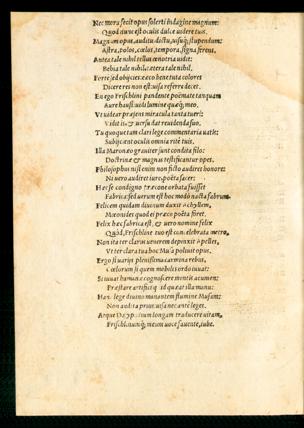 Nec mora fecit opus solerti indagine magnum:
Quod nunc est oculis dulce videre tuis.
Magnum opus, auditu, dictu, visuq; stupendum:
Astra, polos, cœlos, tempora, signa ferens.
Antea tale nihil tellus ænotria vidit:
Bebia tale nihil, cætera tale nihil.
Forte sed obijcies: ceco bene tuta colores
Dicere res non est visa referre decet.
En ego Frischlini pendente poëmate tanquam
Aure hausi vidi lumine quæq; meo.
Ut videar præsens miracula tanta tueri:
Vidit is, & versu dat revidenda suo.
Tu quoque tam clari lege commentaria vatis:
Subijcient oculis omnia ritè tuis.
Illa Maronæo graviter sunt condita filo:
Doctrinæ & magnas testificantur opes.
Philosophus nisi enim non ficto audiret honore:
Ni vero audiret iure, poëta sacer:
Hæc se condigno tracone orbata fuisset
Fabrica: sed verum est hoc modò nacta fabrum.
Felicem quidam divonum duxit Achyllem,
Mæonides quod ei præco poëta foret.
Felix hæc sub orbe, & vero nomine felix
Quòd, Frischline tuo est concelebrata metro,
Non ita ter clarus venerem depinxit Apelles,
Ut ter clara tua hoc Musa polivit opus.
Ergo si varijs plenissima carmina rebus,
Cœlorum si quem mobilis ordo iuvat:
Si iuvat humanæ cognoscere mentis acumen:
Præstare artificis quid queat illa manus:
Hanc lege divino manantem flumine Musam:
Non audita prius, visa nec antè leges.
Atque longam traducere vitam,
Frischlinumq; meum voce favente, iube.